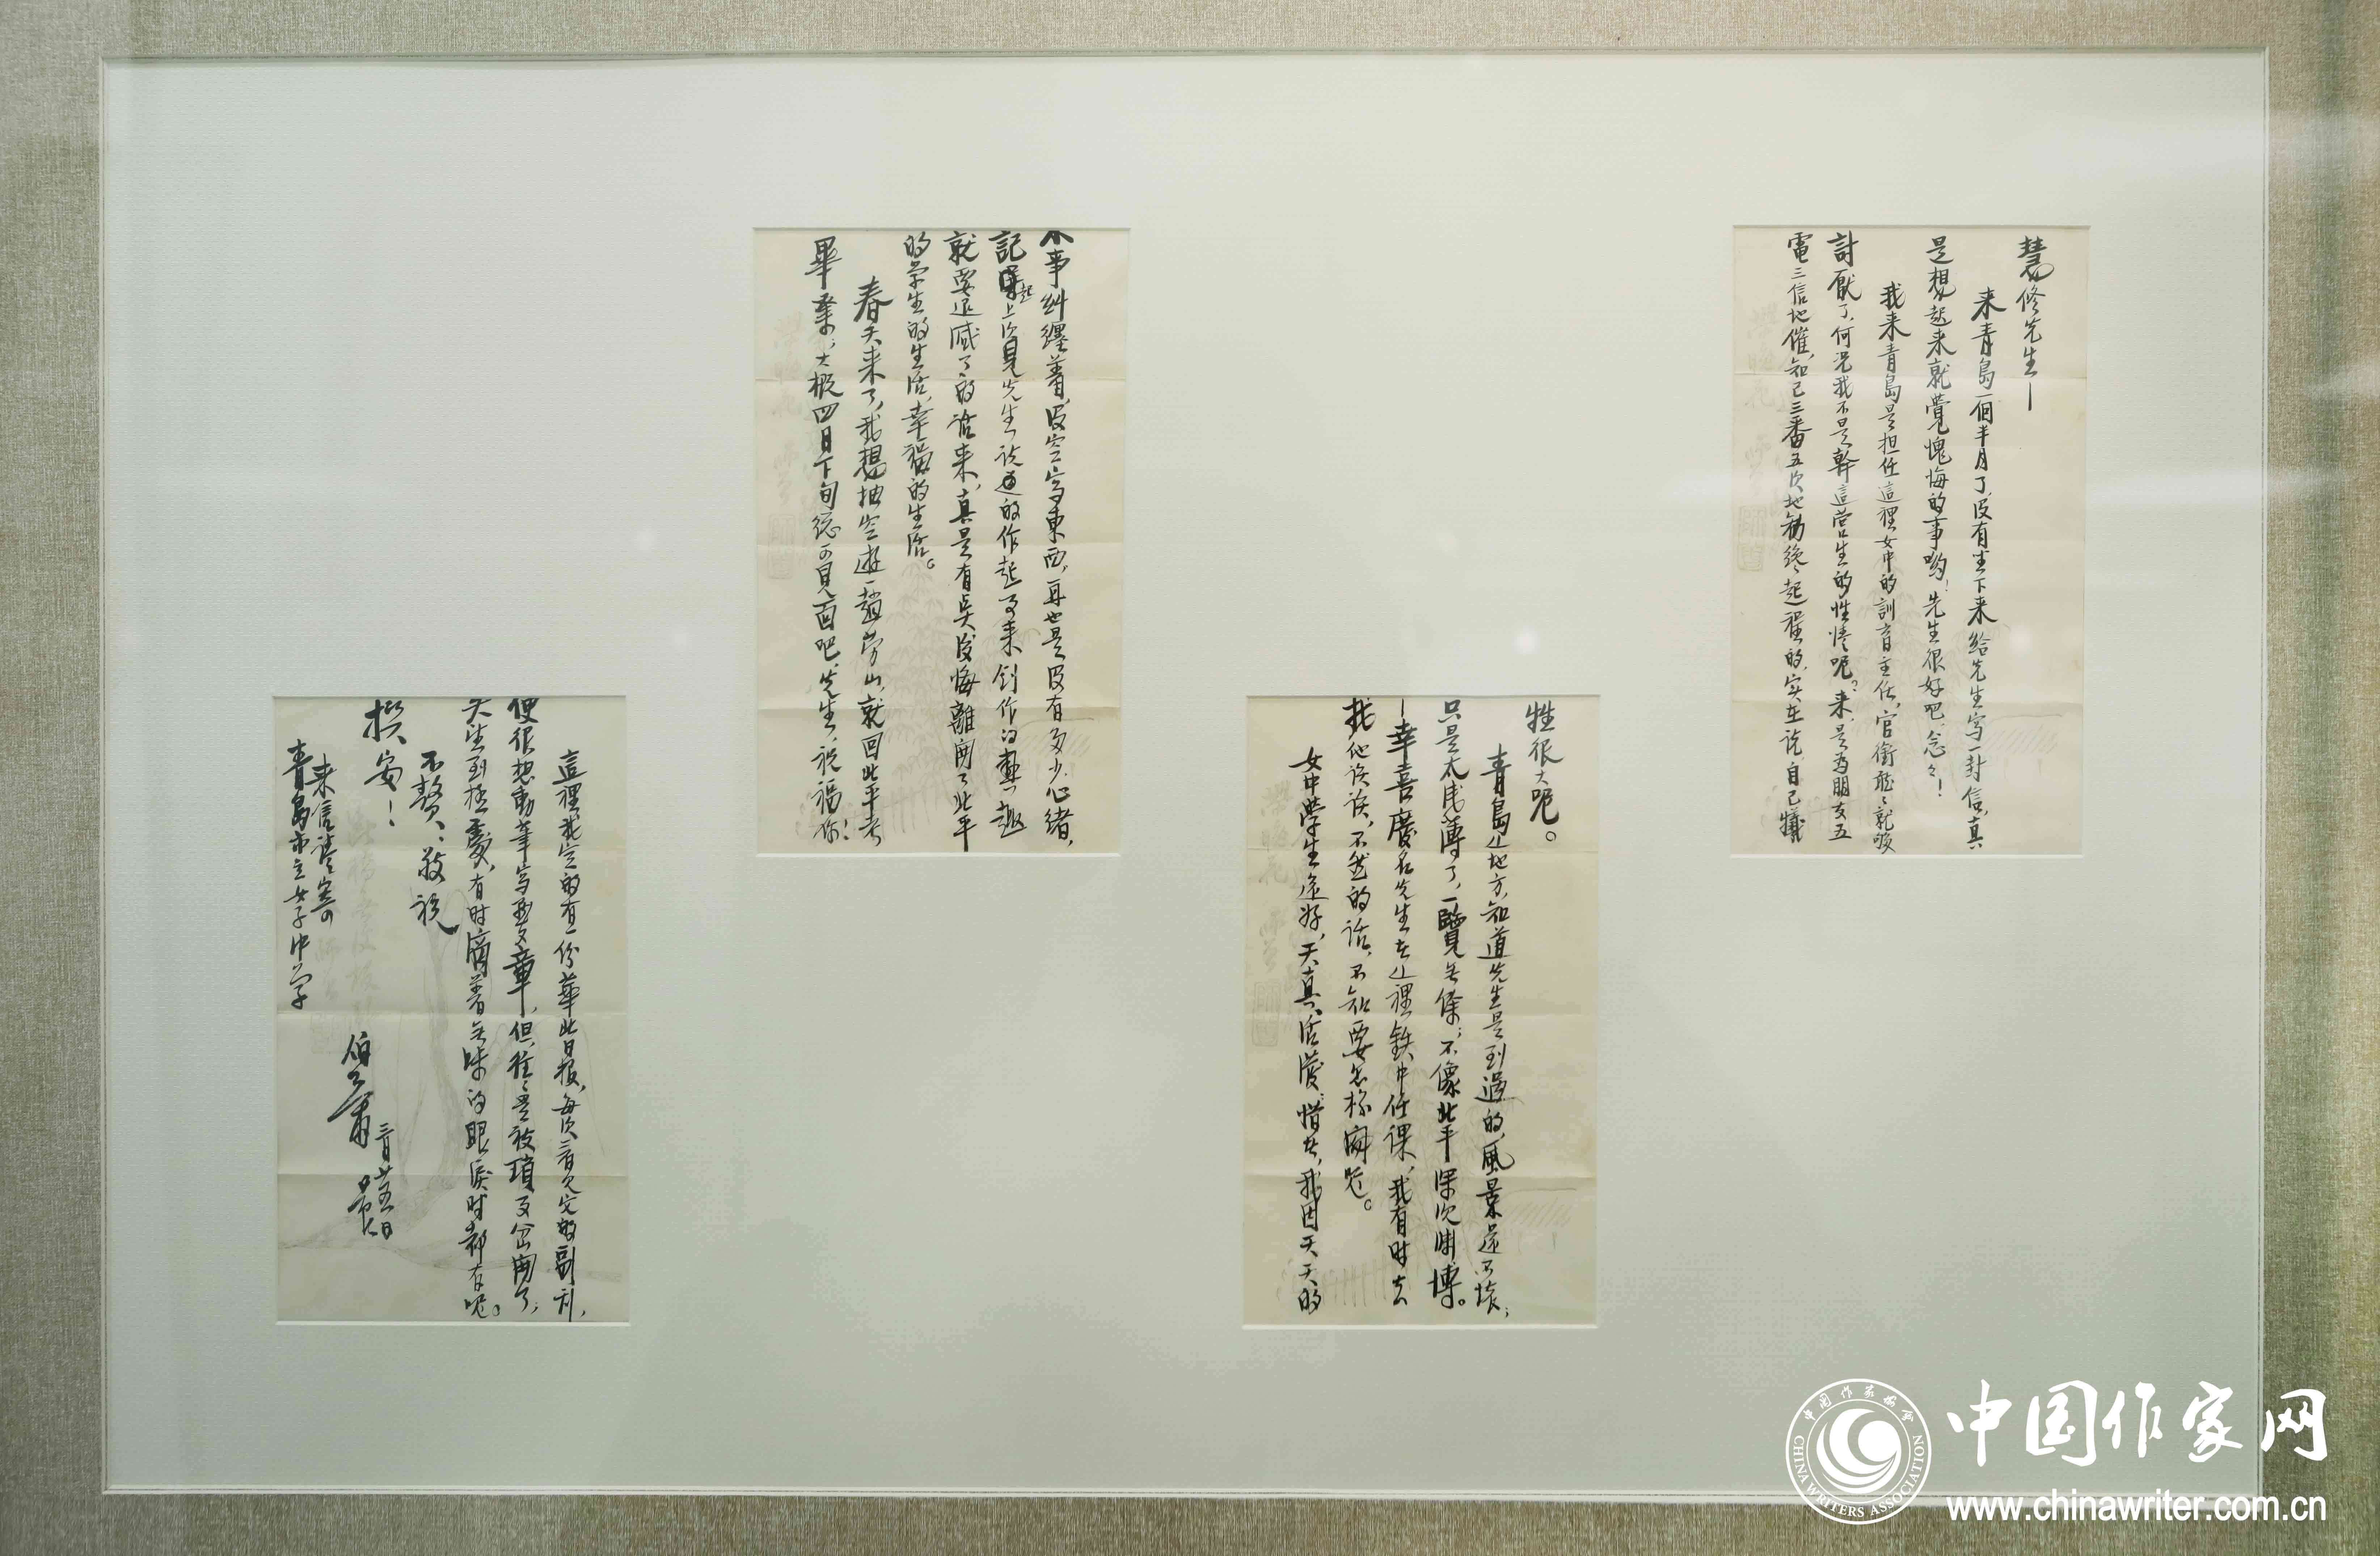 慧修先生—
来青島一個半月了，没有坐下来給先生写一封信，真
是想起来就覺愧悔的事喲！先生很好吧，念々！
我来青島是担任這裡女中的訓育主任，官銜聽々就够
討厭了，何况我不是幹這営生的性情呢？来，是為朋友五
電三信地催，知己三番五次地勸纔起程的，实在说，自己犠
牲很大呢。
青島這地方，知道先生是到過的，風景還不壞；
只是太浅薄了，一覽無餘；不像北平深沉渊博。
—幸喜慶名先生在這裡鉄中任课，我有时去
找他谈谈，不然的话，不知要怎様闷呢。
女中學生還好，天真，活潑，惜者，我因天天的
事糾纏着，没空写東西，再也是没有多少心緒，
記起上次見先生说過的作起事来創作的興趣
就要退减了的话来，真是有点後悔離開了北平
的学生的生活，幸福的生活。
春天来了，我想抽空遊一趟劳山，就回北平去
畢業，大概四月下旬總可見面吧，先生，祝福你！
這裡我定的有一份華北日报，每次看见它的副刊，
便很想動筆写點文章，但往々是被瑣事岔開了；
失望到極處，有时滴着無味的眼淚时都有呢。
不贅，敬祝
撰安！
来信請寄
青島市立女子中学
伯簫
三月廿五日
晨
中国作家协会
CHINA WRITERS ASSOCIATION
中国作家网
www.chinawriter.com.cn